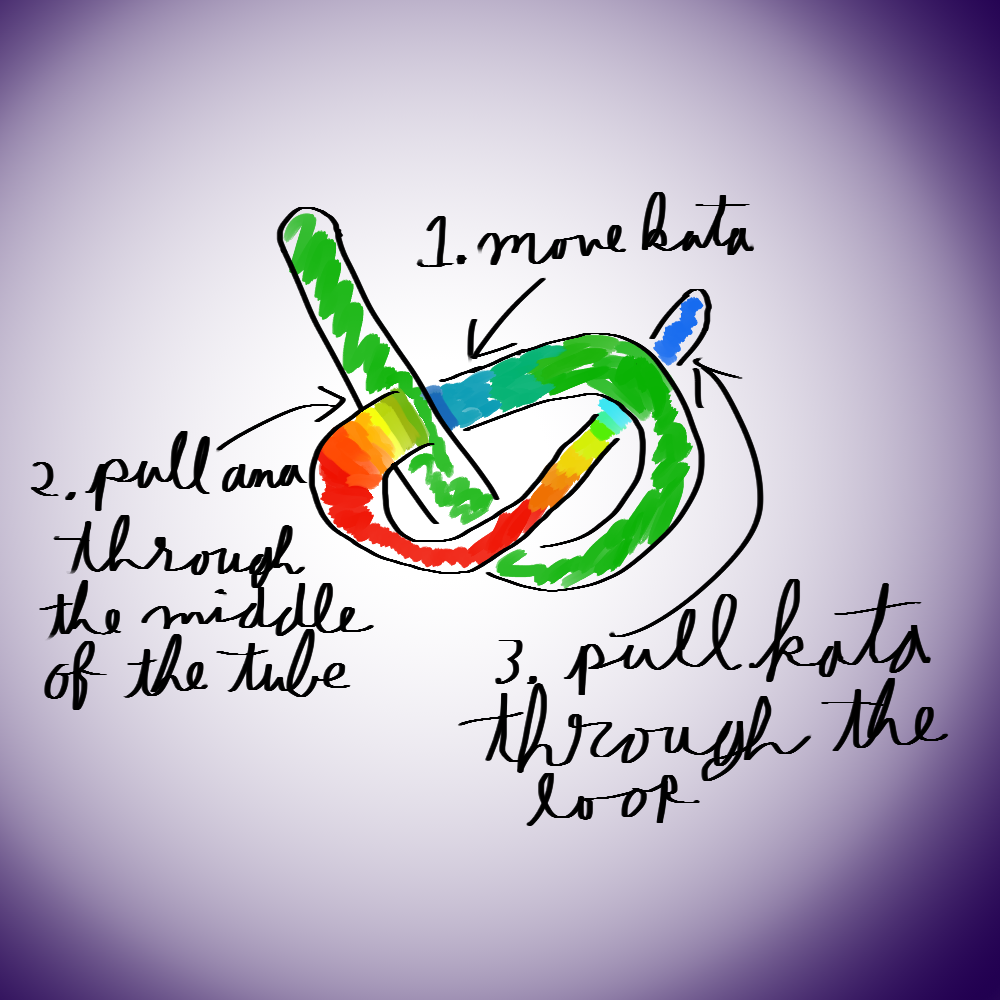 1. move kata
2. pull ana
through
the middle
of the tube
3. pull kata
through the
loop